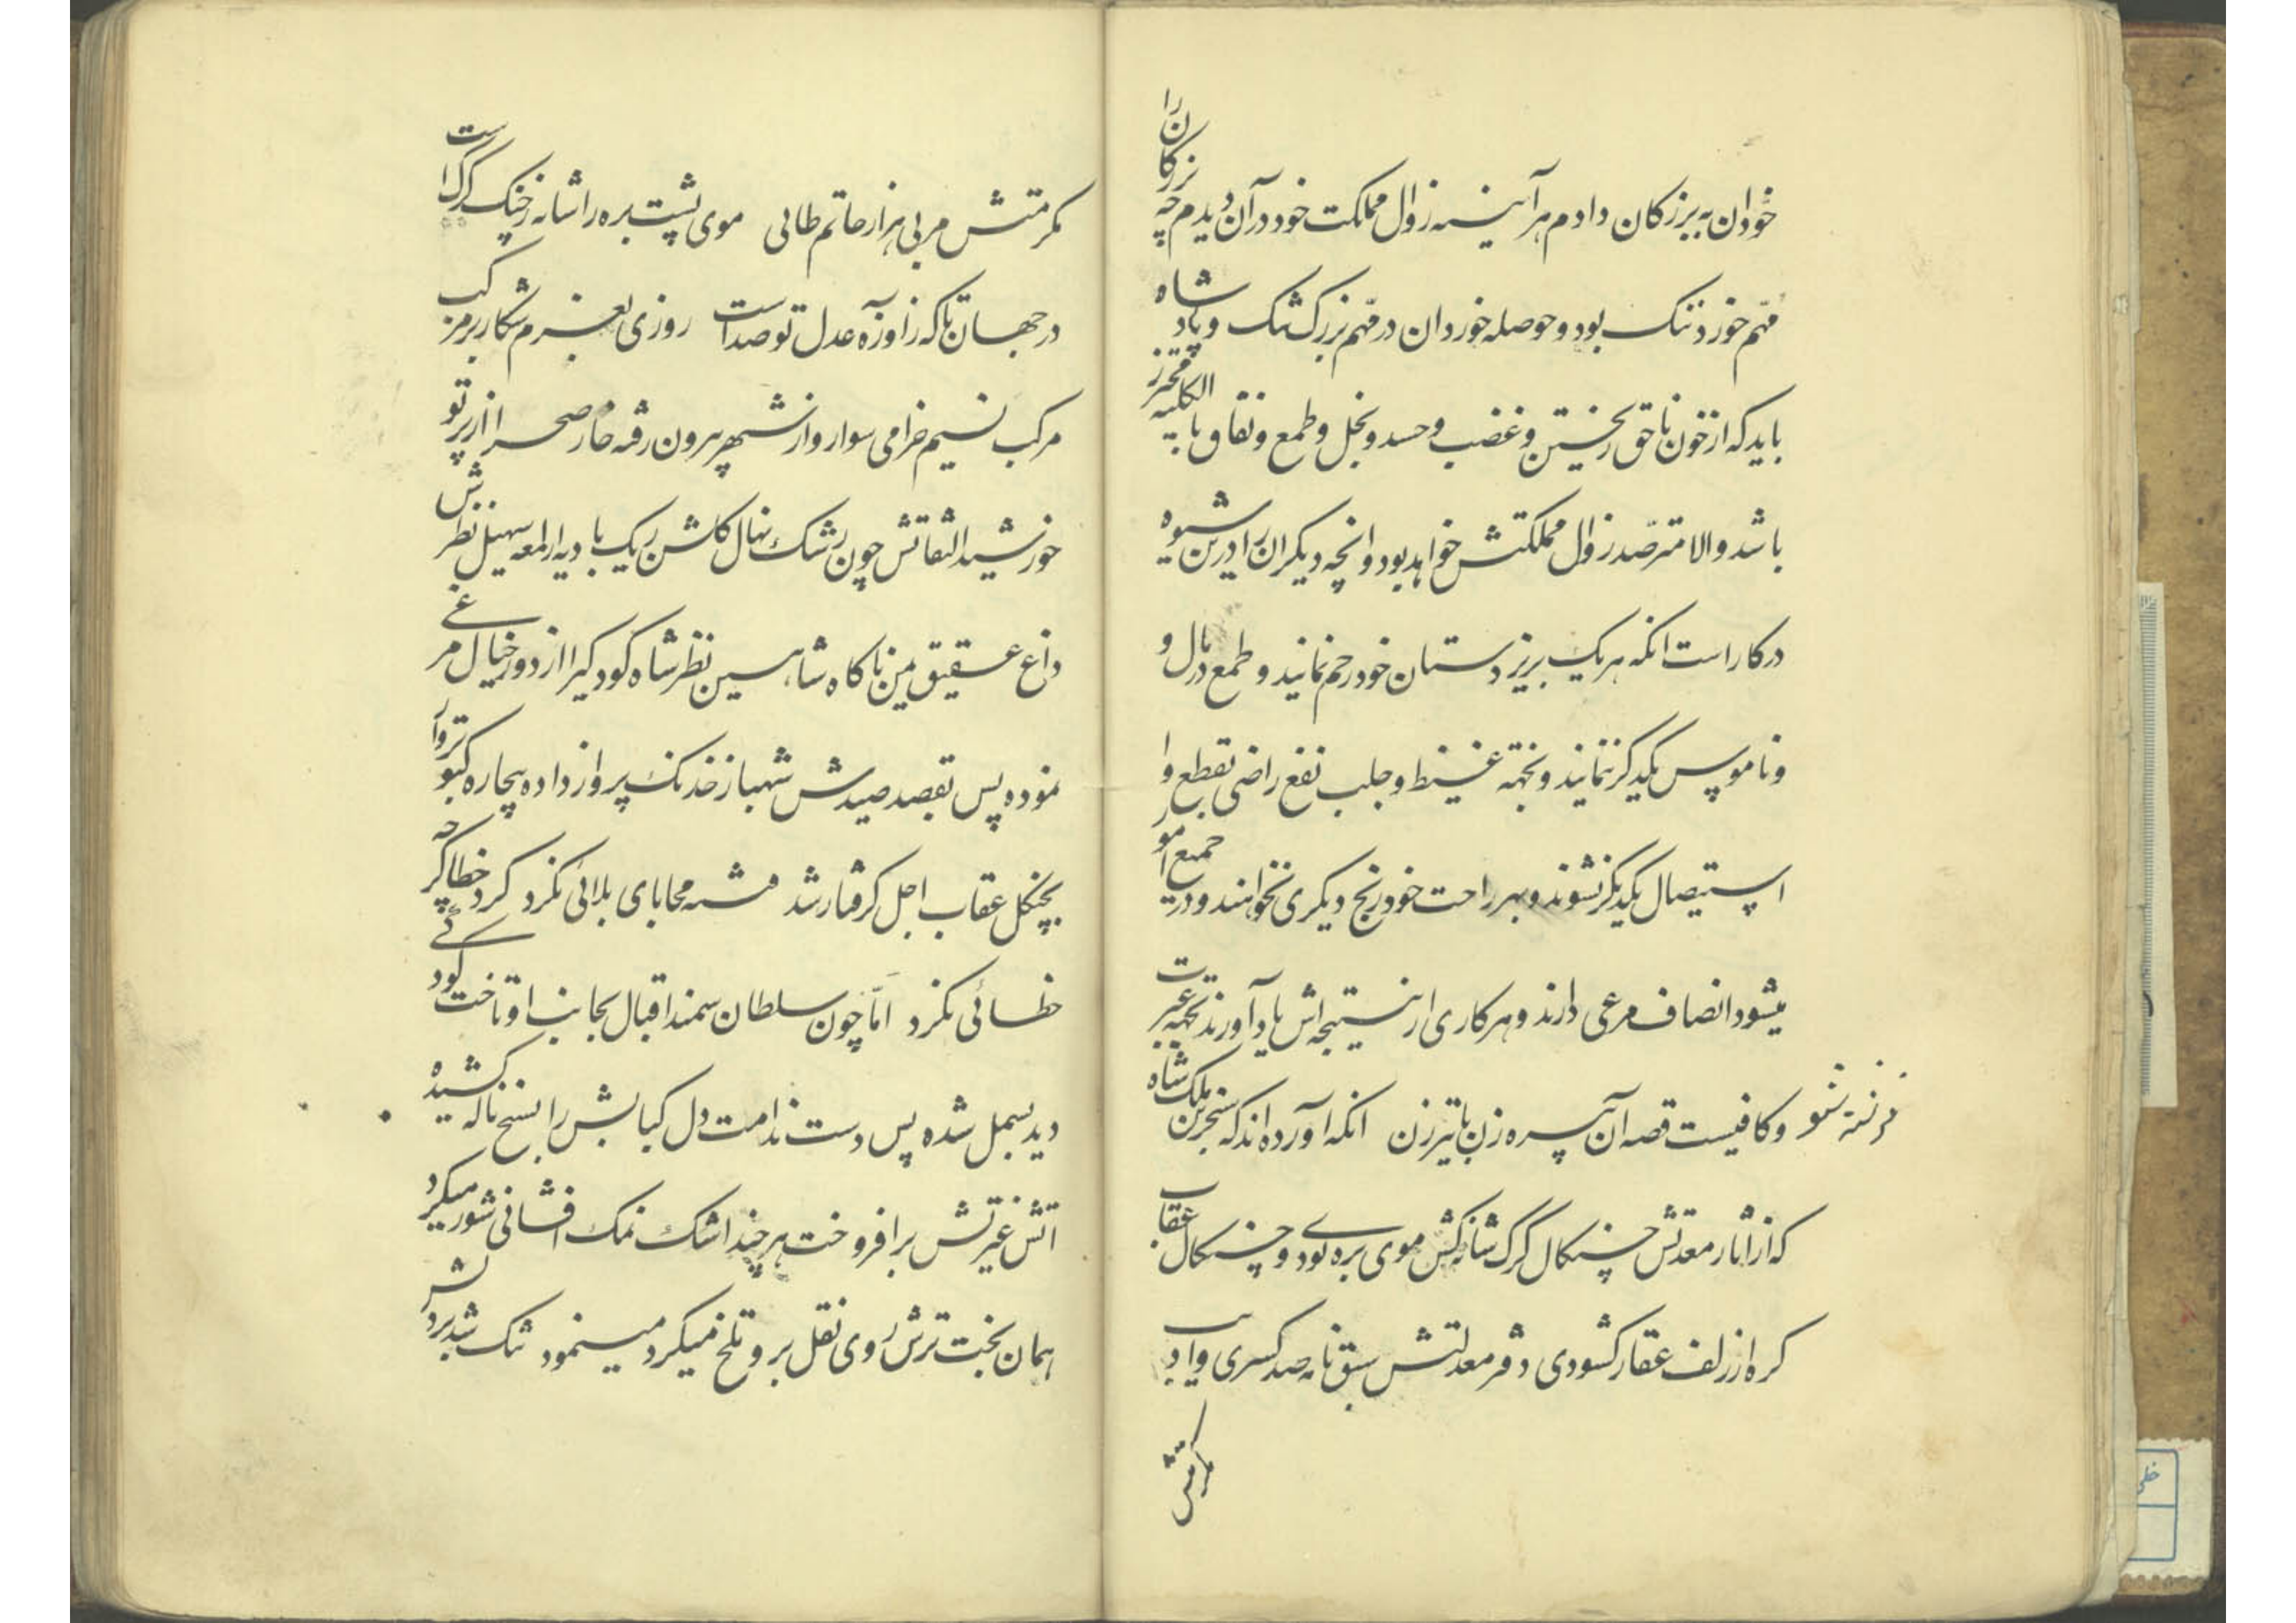 خوردان به بزرگان دادم هر آینه زوال مملکت خود در آن دیدم چه بزرگان را
مهم خورد تنک بود و حوصله خوردان در مهم بزرگ تنک و پادشاه
باید که از خون ناحق ریختن و غضب و حسد و بخل و طمع و نفاق بالکلیه محترز
باشد و الا مترصد زوال مملکتش خواهد بود و انچه دیگران را درین شیوه
درکار است انکه هر یک بر زیردستان خود رحم نمانید و طمع در مال و
و ناموس یکدیگر ننمایند و بجهة غیظ و جلب نفع راضی بقطع و ا
استیصال یکدیگر نشوند و بهر راحت خود رنج دیگری نخواهند و در جمیع امور
میشود انصاف مرعی دارند و هر کاری از نتیجه اش یاد آورند بجهة عبرت
و کافیست قصه آن پیره زن با تیرزن انکه آورده اند که سنجر بن ملک شاه
که از اثار معدلتش چنکال گرگ شانه کش موی بره بود و چنکال عقاب
کره از زلف عقار کشودی دفتر معدلتش سبق نامه صد کسری و
مکرمتش
مکرمتش مربی هزار حاتم طائی موی پشت بره را شانه ز چنک گرگ است
در جهان تا که ز آوازه عدل تو صداست روزی بعزم شکار بر مرکب
مرکب نسیم خرامی سوار و از شهر بیرون رفته خار صحرا از پرتو
خورشید التفاتش چون رشک نهال کلشن ریک بادیه از لمعه سهیل نظرش
داغ عقیق یمن ناکاه شاهین نظر شاه کودکی را از دور خیال مرغی
نموده پس بقصد صیدش شهباز خدنک پرواز داده بیچاره کبوتروار
بچنکل عقاب اجل کرفتار شد محابای بلائی نکرد کرد خطا کرچه
خطائی نکرد امّا چون سلطان سمند اقبال بجانب او تاخت کودکی
دید بسمل شده پس دست ندامت دل کبابش را بسیخ ناله کشیده
اتش غیرتش برافروخت هر چند اشک نمک افشانی شور میکرد
همان بخت ترش روی نقل بر و تلخ میکرد مینمود تنک شد بر دلش